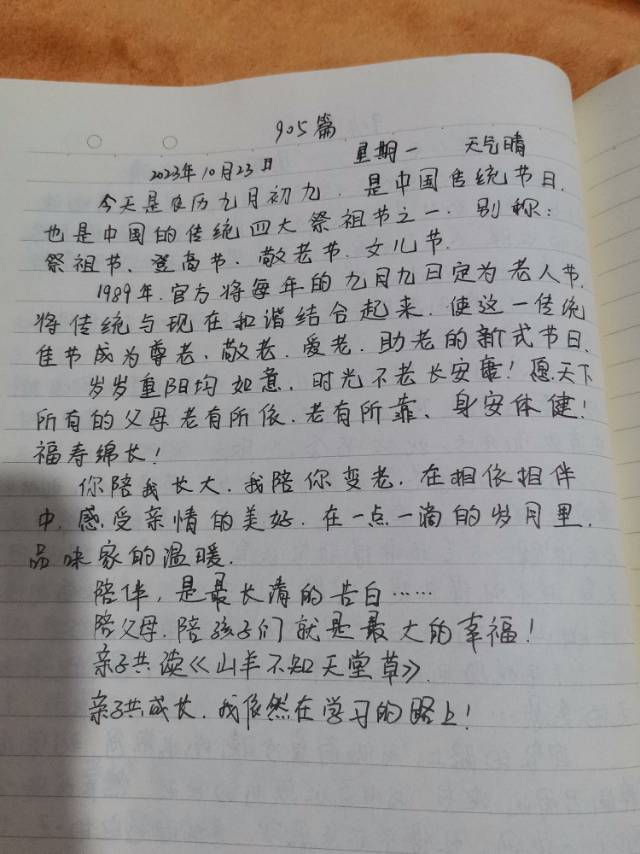 905篇
2023年10月23日 星期一 天气晴
今天是农历九月初九.是中国传统节日.
也是中国的传统四大祭祖节之一.别称:
祭祖节、登高节.敬老节.女儿节.
1989年.官方将每年的九月九日定为老人节.
将传统与现在和谐结合起来.使这一传统
佳节成为尊老.敬老.爱老.助老的新式节日.
岁岁重阳均如意.时光不老长安康!愿天下
所有的父母老有所依.老有所靠、身安体健!
福寿绵长!
你陪我长大.我陪你变老.在相依相伴
中.感受亲情的美好.在一点一滴的岁月里.
品味家的温暖.
陪伴,是最长情的告白……
陪父母.陪孩子们就是最大的幸福!
亲子共读《山羊不知天堂草》.
亲子共成长.我依然在学习的路上!